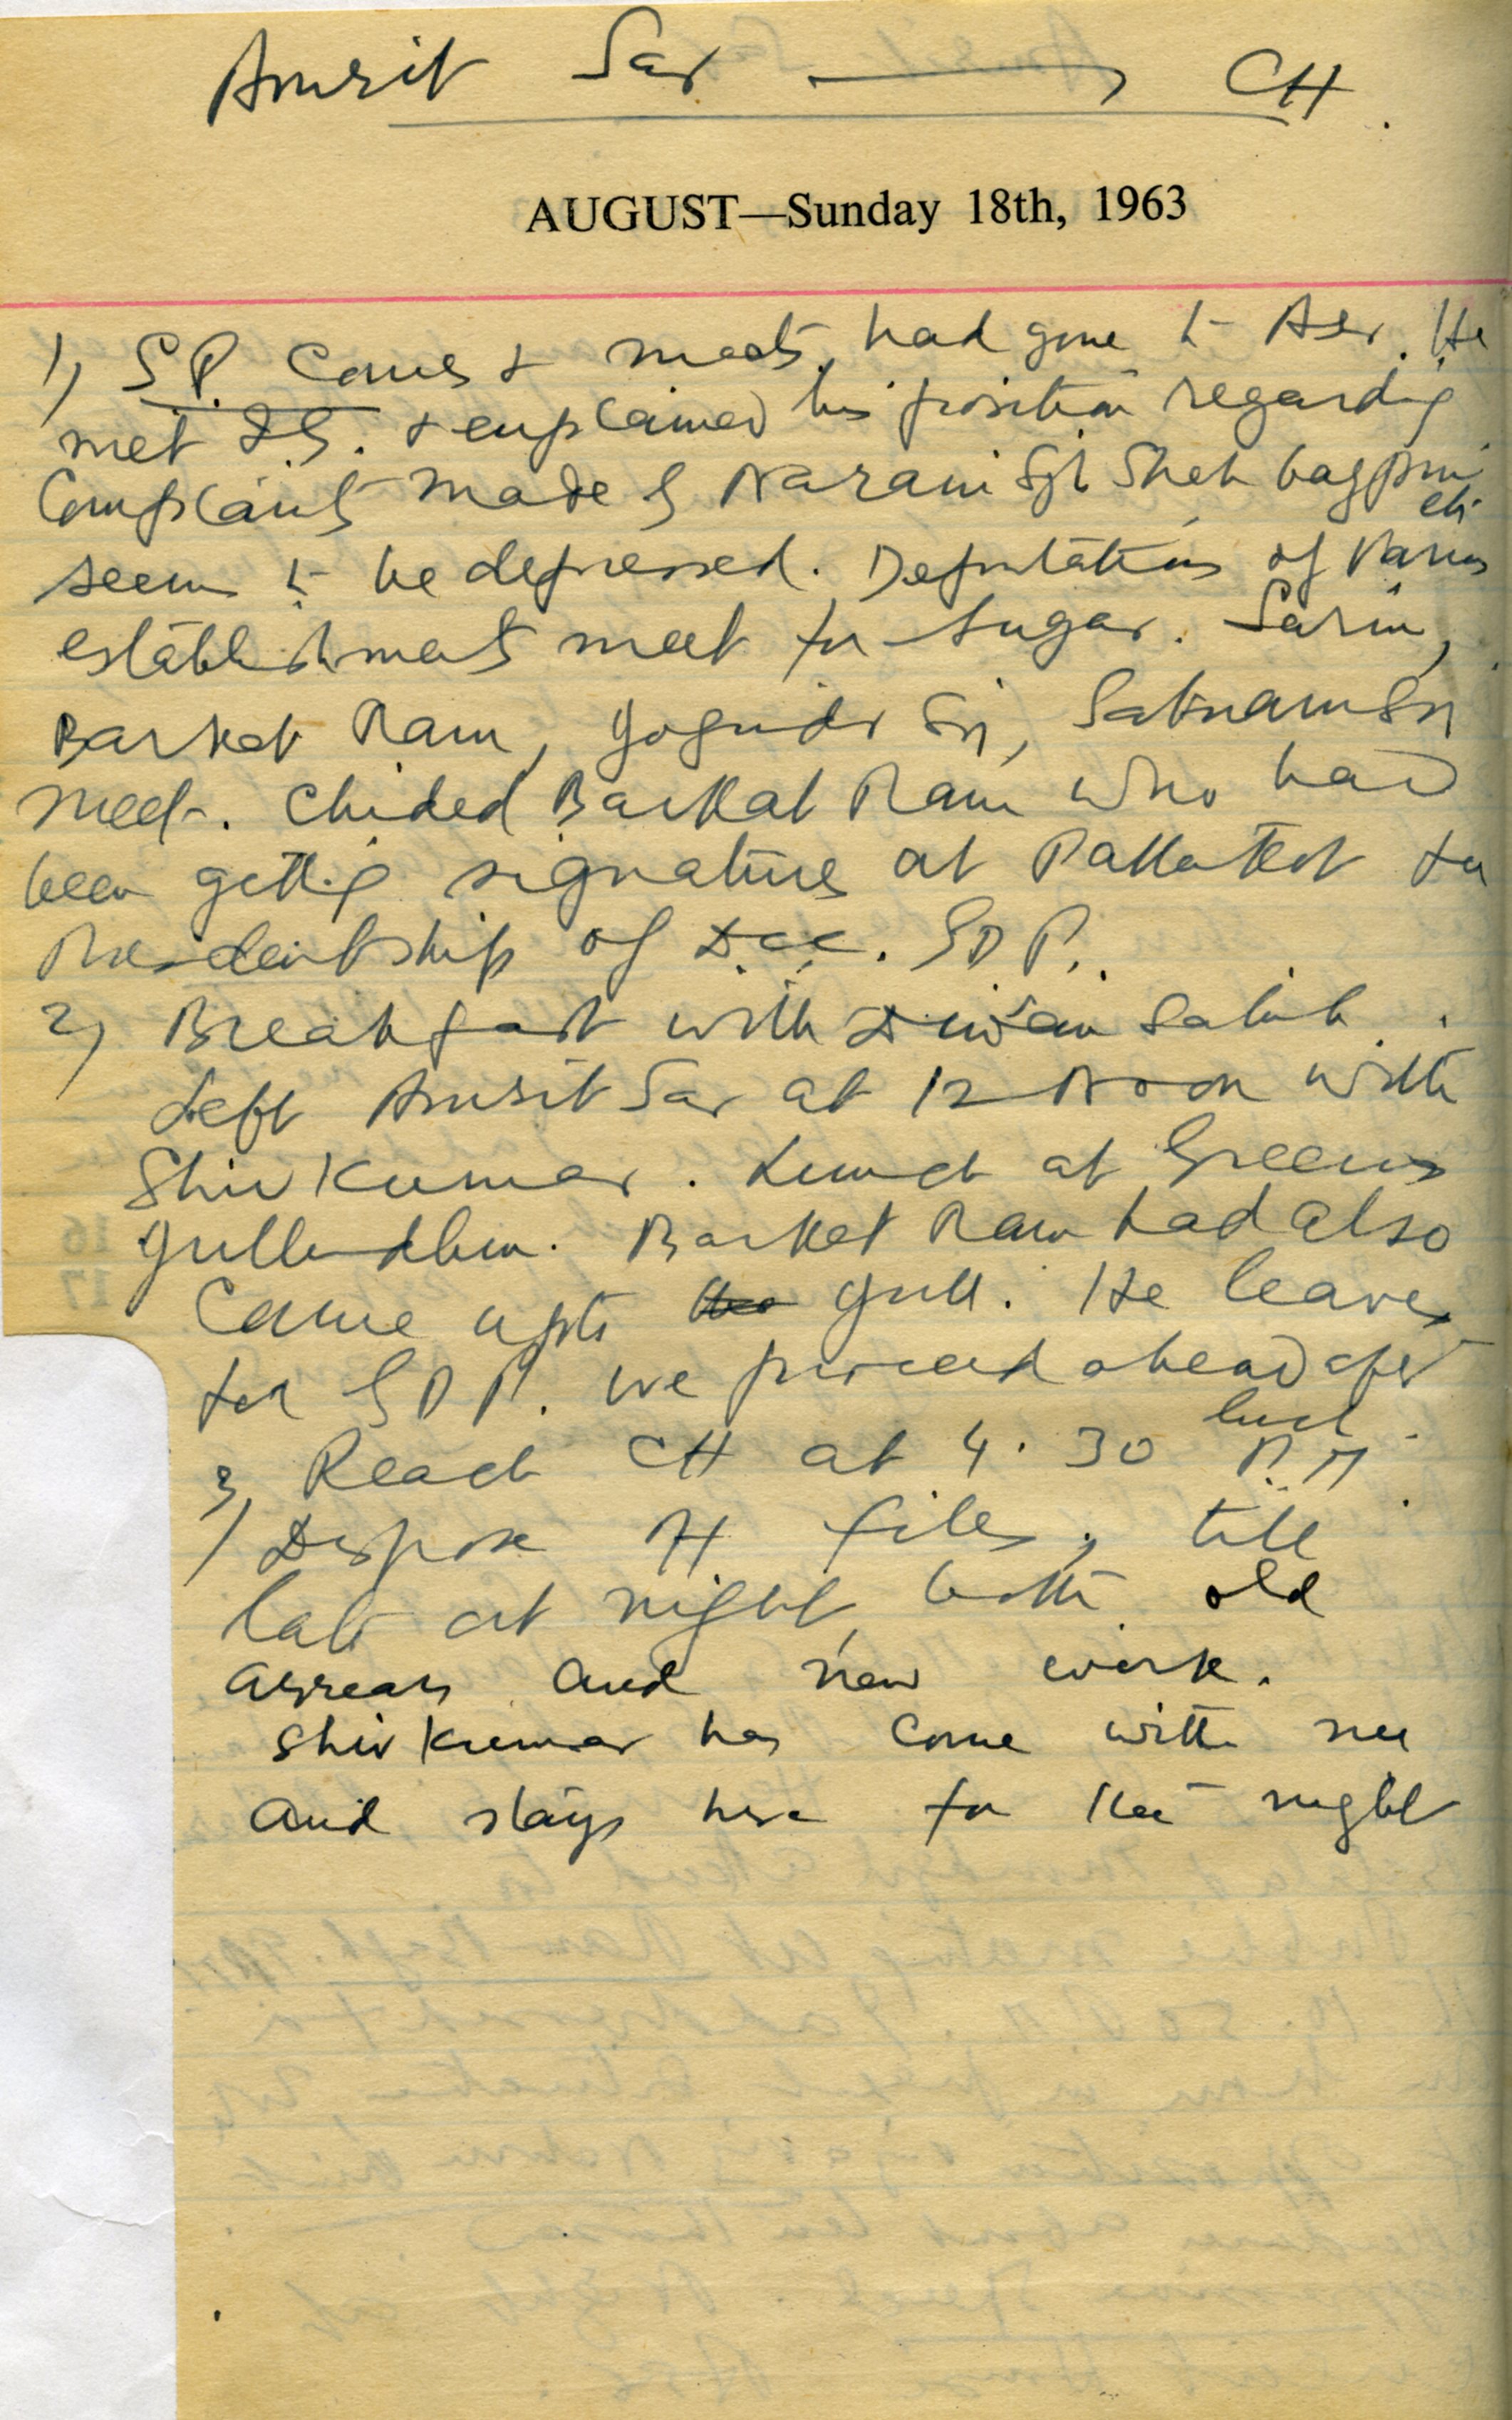 Amrit Sar → CH.
AUGUST—Sunday 18th, 1963
1) S.P. Comes & meets, had gone to Asr. He
met IG. & explained his position regarding
Complaints made by Narain Sgh
etc
seems to be depressed. Deputations of various
establishments meet for sugar. Sarin,
Barkat Ram, Yoginder Sn, Satnam Sn
meet. Chided Barkat Ram who had
been getting signatures at Pathankot for
Presidentship of Dcc. GDP.
2) Breakfast with Diwan Sahib.
Left Amrit Sar at 12 Noon with
Shiv Kumar. Lunch at Greens
Jullundhur. Barket Ram had also
Come upto Jull. He leaves
for GDP. We proceed ahead after
lunch.
3) Reach CH at 4.30 P.M.
Dispose of files, till
late at night, both old
arrears and new work.
Shiv Kumar has come with me
and stays here for the night